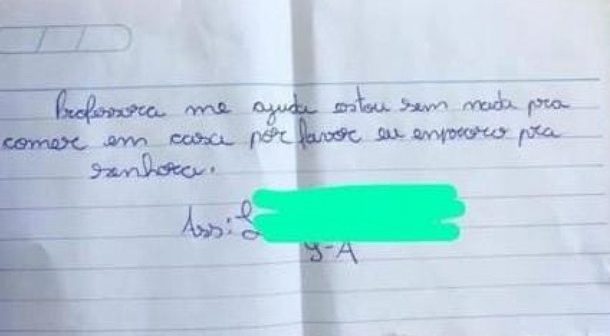 Professora me ajuda estou sem nada pra
comer em casa por favor eu pra
senhora.
Ass:
9-A